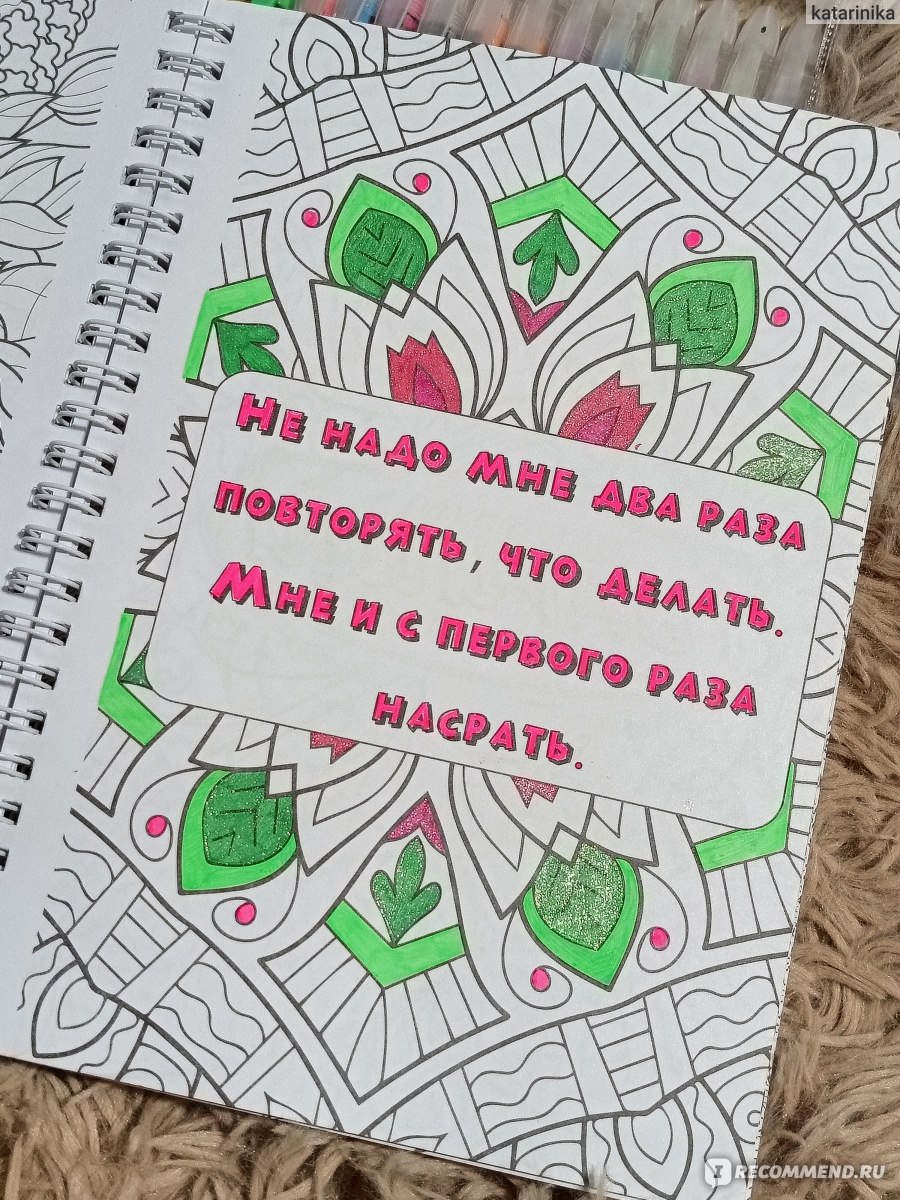 katarinika
Не надо мне два раза
повторять, что делать.
Мне и с первого раза
насрать.
RECOMMEND.RU